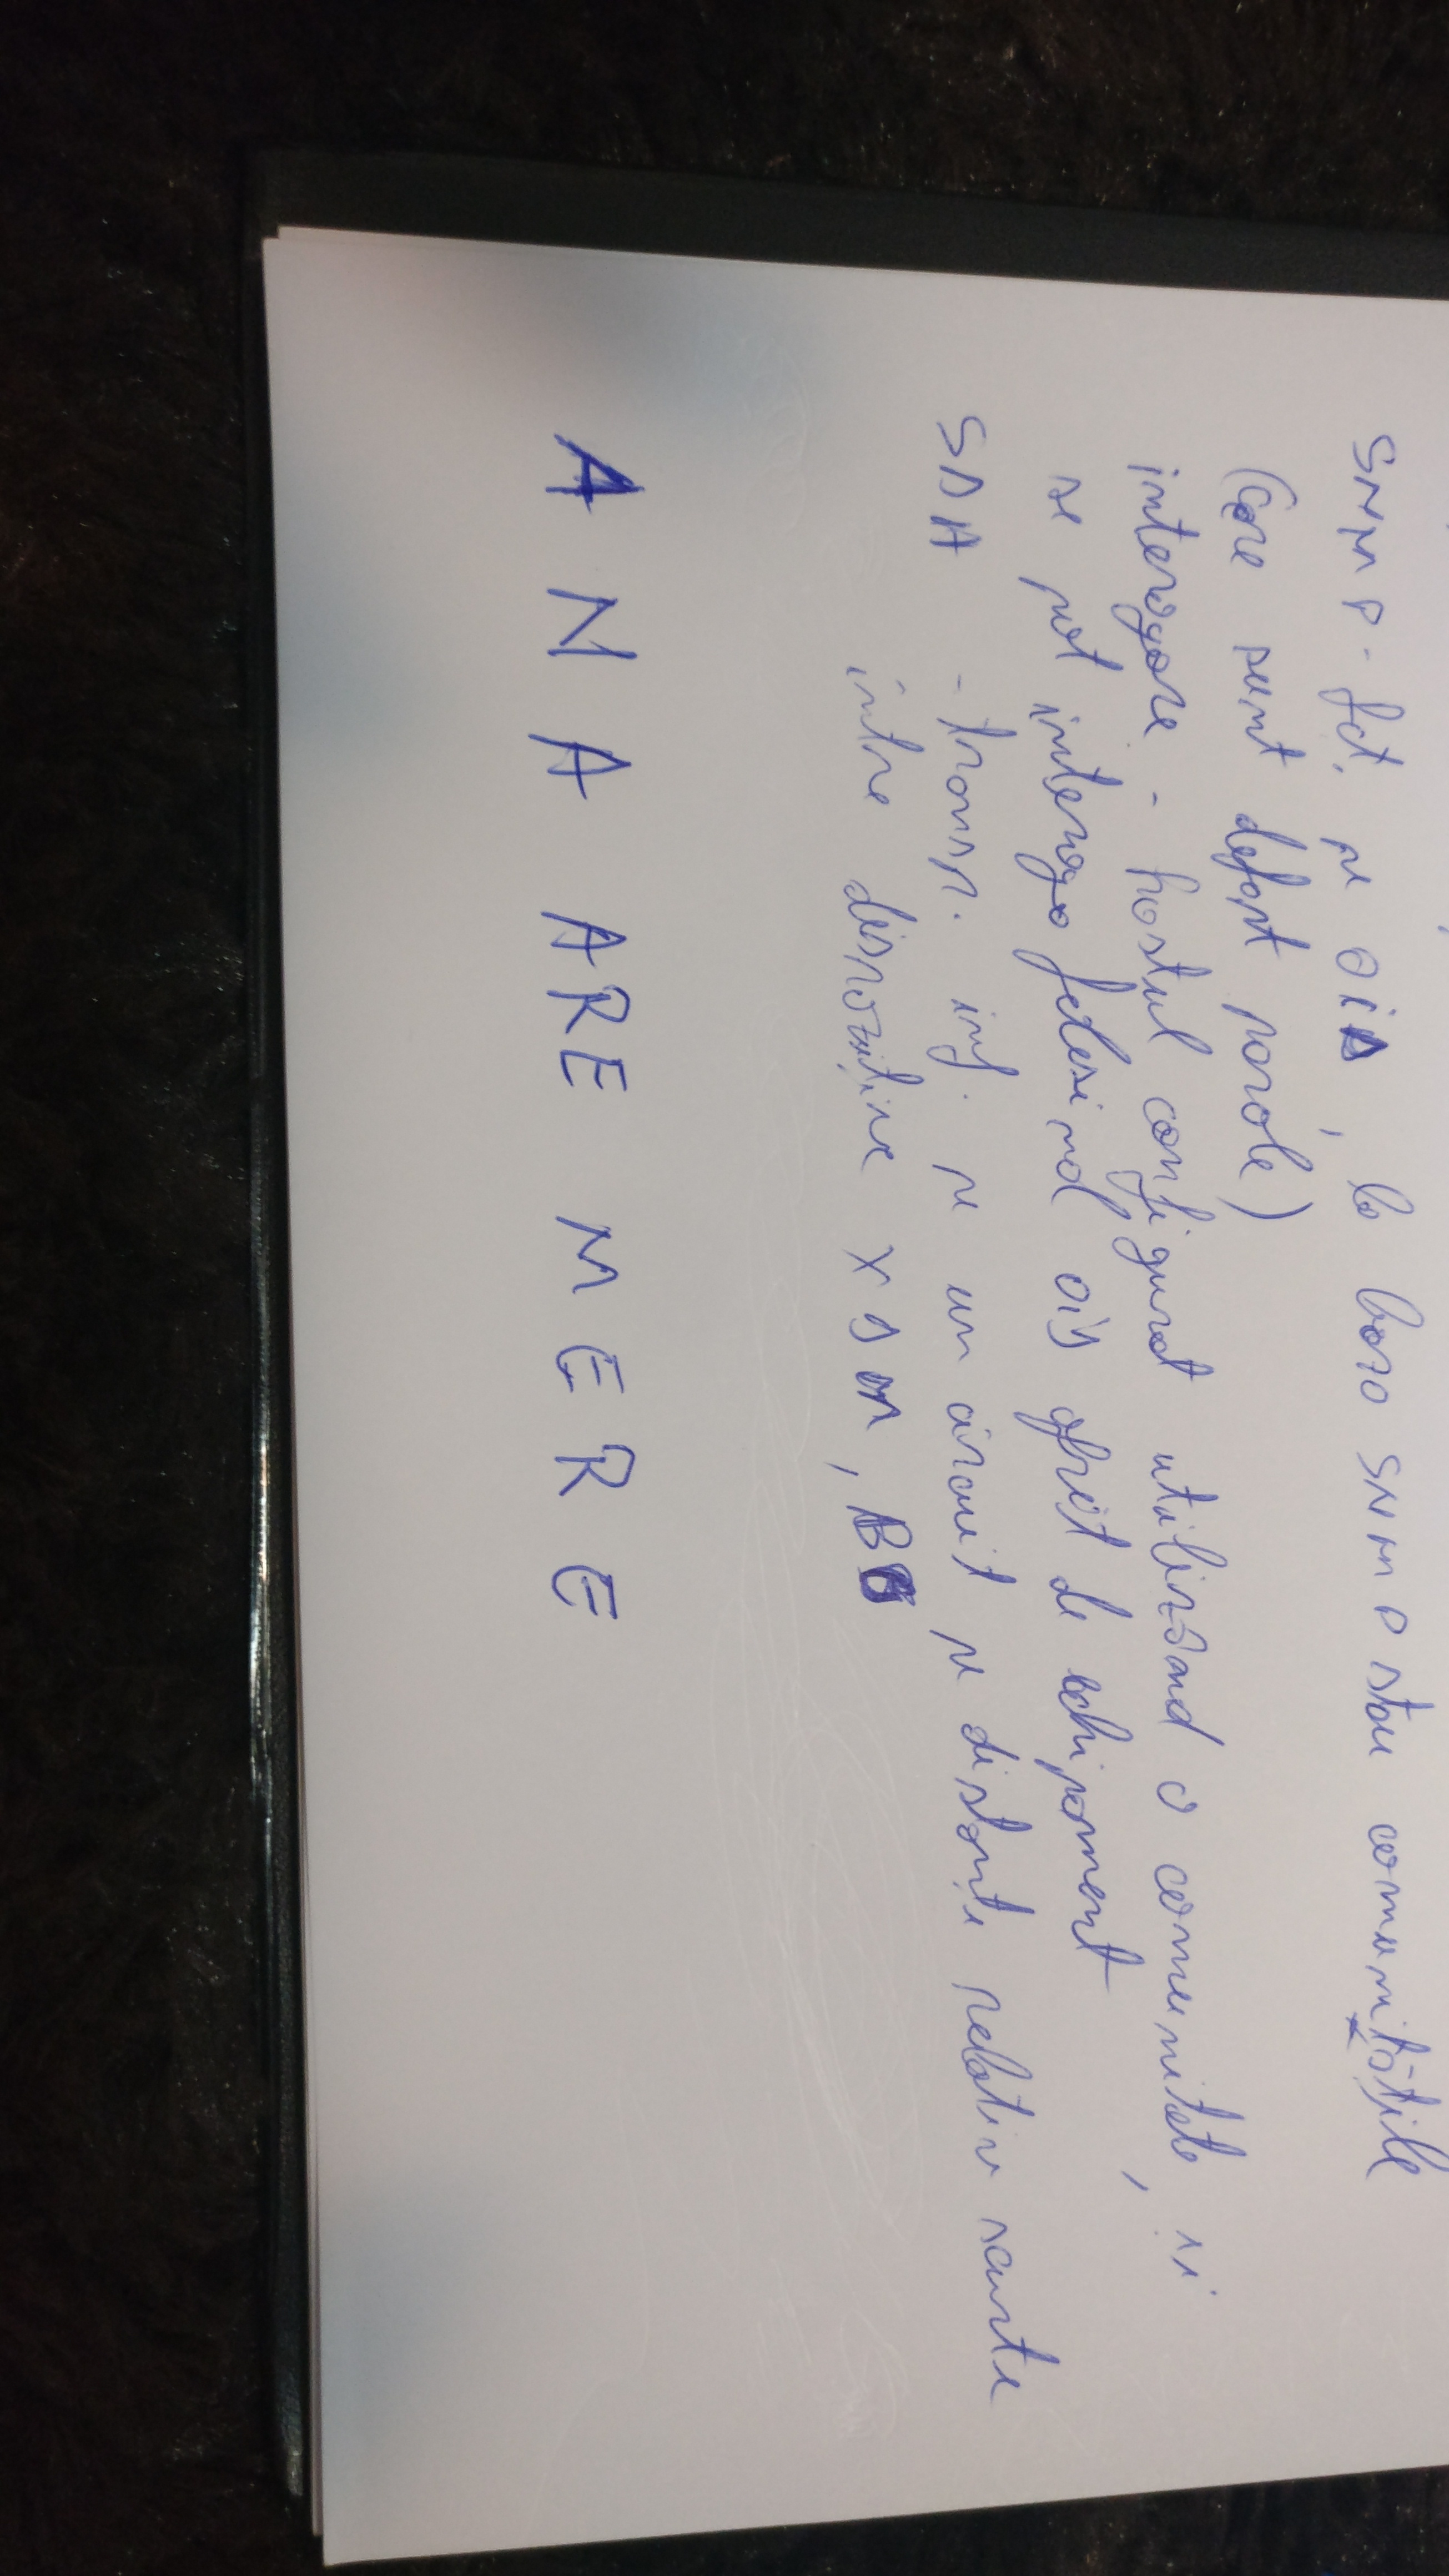 SNMP - fct. pe OID, la baza SNMP stau comunitățile
(care sunt defapt parole)
interogare - hostul configurat utilizând o comunitate, și
se pot interoga folosind OID oferit de echipament
SDH - transp. inf. pe un circuit pe distanțe relativ scurte
între dispozitive XDM, BG
ANA ARE MERE